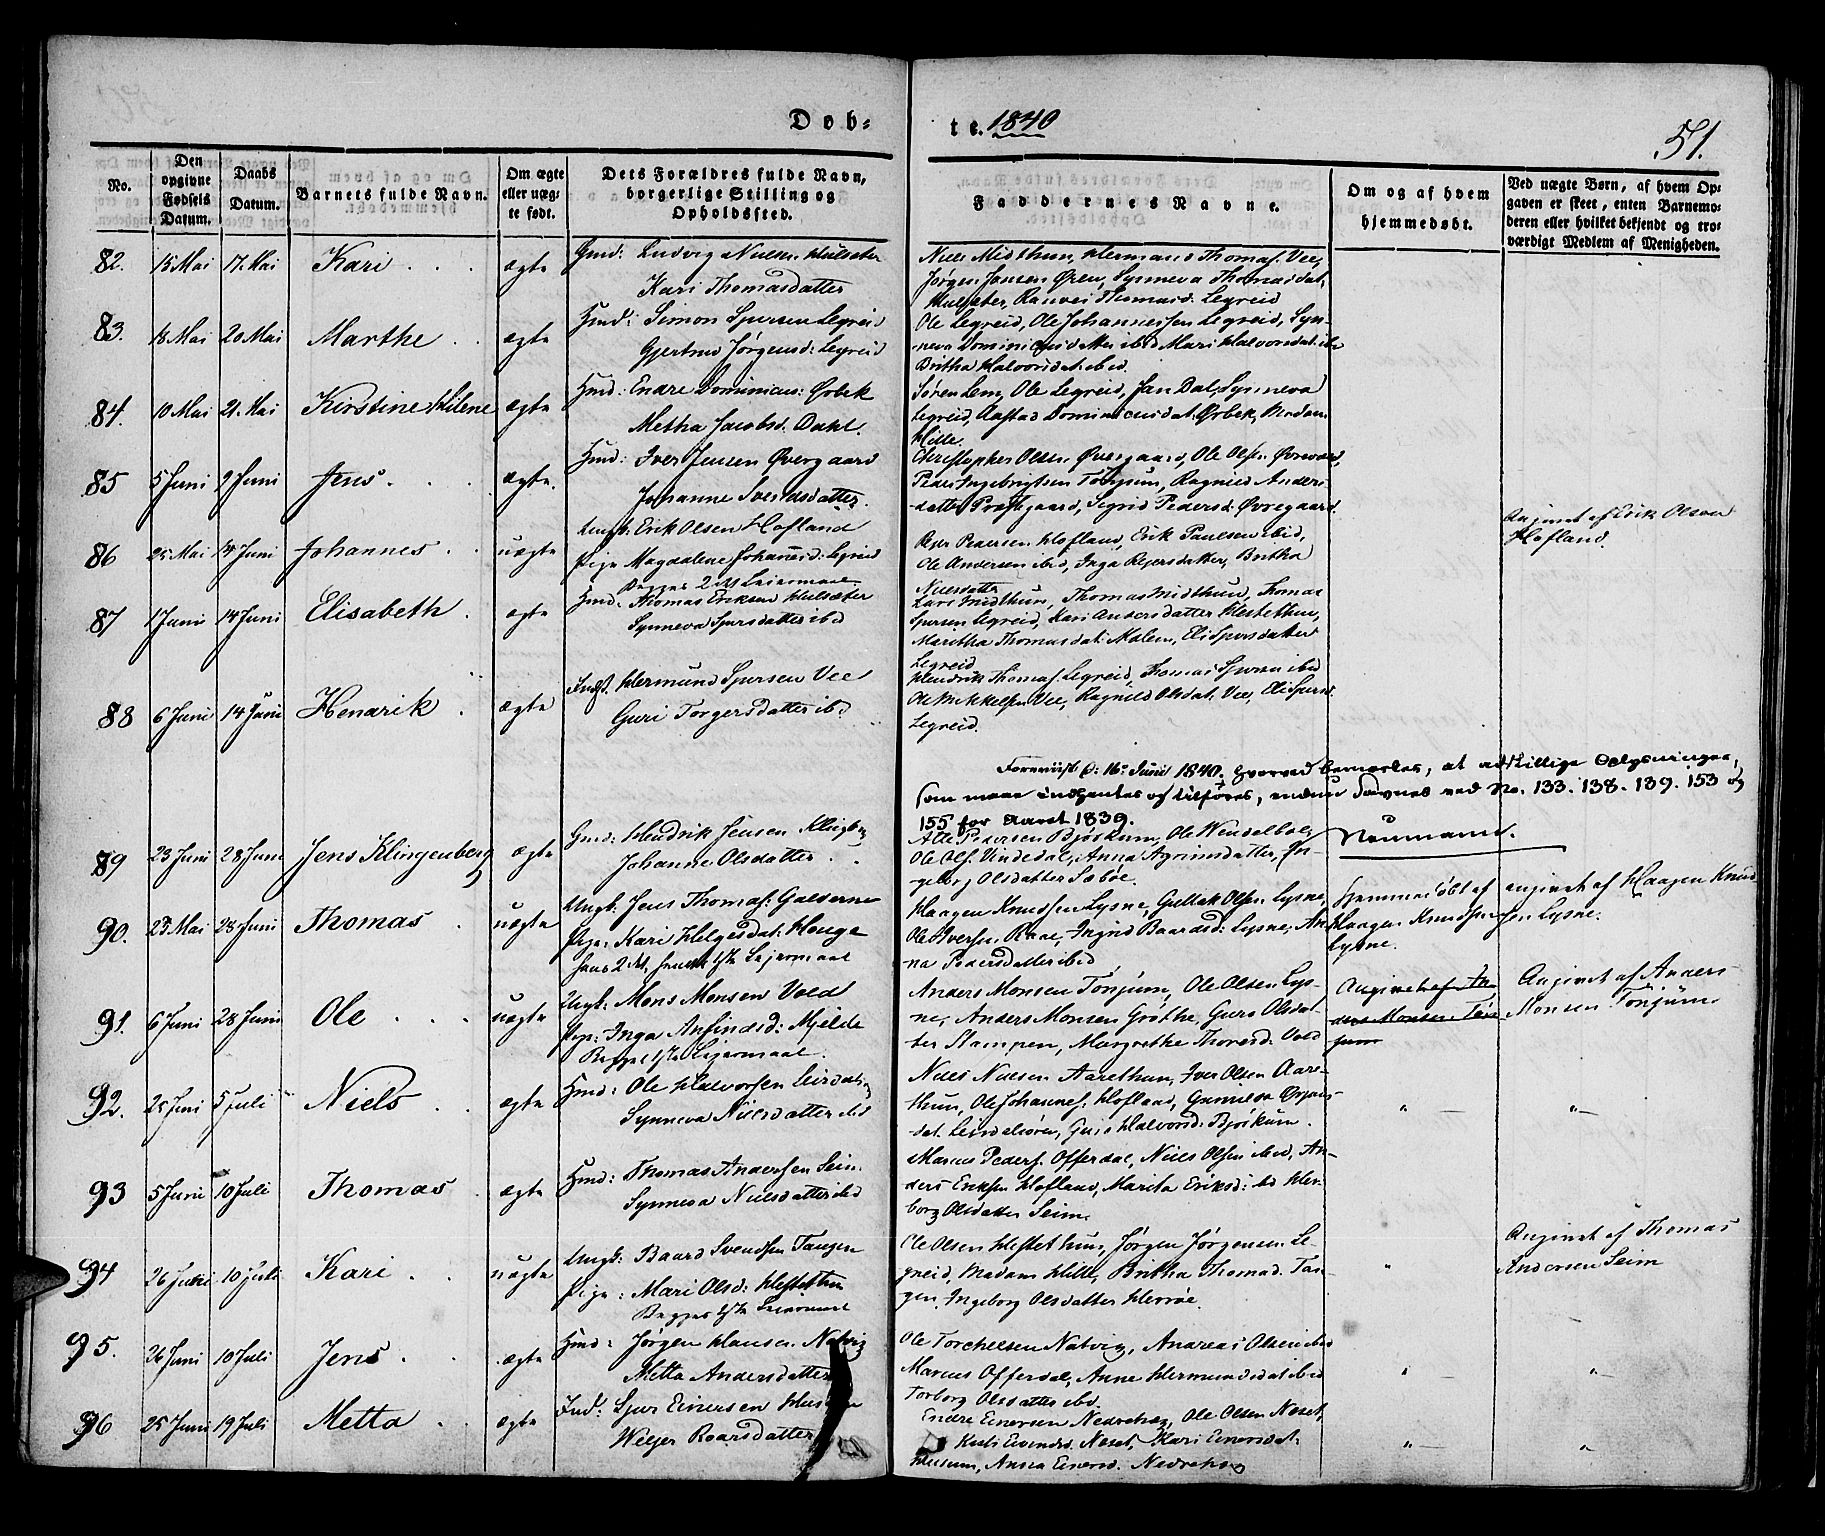 Døb-
te. 1840
51.
No.
Den opgivne Fødsels Datum.
Daabs Datum.
Barnets fulde Navn.
Om ægte eller uægte født.
Dets Forældres fulde Navn, borgerlige Stilling og Opholdssted.
Faddernes Navne.
Om og af hvem hjemmedøbt.
Ved uægte Børn, af hvem Opgaven er skeet, enten Barnemoderen eller hvilket bekjendt og troværdigt Medlem af Menigheden.
82. 15 Mai 17. Mai Kari ægte
Gmd: Ludvig Nielsen Hulsæter
Kari Thomasdatter
Niels Midthun, Hermund Thomas. Vee,
Jørgen Jensen Øren, Synneva Thomasdat.
Hulsæter, Ranvei Thomasd: Legreid
83. 18 Mai 20 Mai Marthe ægte
Hmd: Simon Sjursen Legreid
Gjertrud Jørgensd: Legreid
Ole Legreid, Ole Johannessen Legreid, Syn-
neva Dominicusdatter ibid Mari Halvorsdat. ibd
Britha Halvorsdat. ibid.
84. 10 Mai 21. Mai Kirstine Hilene ægte
Hmd: Endre Dominicus: Ørbek
Metha Jacobsd. Dahl.
Søren Lem, Ole Legreid, Jan Dal, Synneva
Legreid, Aastad Dominicusdat. Ørbek, Madam
Hille.
85 5 Juni 9 Juni Jens ægte.
Hmd: Iver Jensen Øvergaard
Johanne Svendsdatter.
Christopher Olsen Øvregaard, Ole Olsen
Peder Ingebrigtsen Tønjum, Ragnild Anders
datter Præstgaard, Sigrid Pedersd: Øvregaard
86 25 Mai 14 Juni Johannes uægte
Ungk: Erik Olsen Hofland
Pige Magdalene Johannisd: Legreid
Begges 2det Leiermaal.
Peder Pedersen Hofland, Erik Paulsen ibid,
Ole Andersen ibid, Inga Reiersdatter, Britha
Nielsdatter
Angivet af Erik Olsen
Hofland.
87 1 Juni 14 Juni Elisabeth ægte
Hmd: Thomas Eriksen Hulsæter
Synneva Sjursdatter ibd
Lars Midthun, Thomas Midthun, Thomas
Sjursen Legreid, Kari Andersdatter Hestethun,
Maritha Thomasdat: Molem, Eli Sjursdatter
Legreid
88 6 Juni 14 Juni Henrik ægte
Indst. Hermund Sjursen Vee
Guri Torgersdatter ibd
Hendrik Thomas. Legreid, Thomas Sjursen ibid
Ole Mikkelsen Vee, Ragnild Olsdat. Vee, Eli Sjursd.
Legreid.
Foreviist d: 16de Juni 1840, hvorved bemærkes, at adskillige Oplysninger,
som maae indhentes og tilføres, endnu savnes ved No. 133. 138. 139. 153 og
155 for Aaret 1839.
Neumann.
89 23 Juni 28 Juni Jens Klingenberg ægte
Gmd: Hendrik Jensen Klingbg
Johanne Olsdatter
Atle Pedersen Bjørkum, Ole Wendelboe,
Ole Ols. Vindedal, Anna Agrimsdatter, In-
geborg Olsdatter Sæbøe.
90. 23 Mai 28 Juni Thomas uægte
Ungk: Jens Thomas: Galderne
Pige: Kari Helgesdat. Hauge
hans 2det, hendes 1ste Leiermaal
Haagen Knudsen Lysne, Gullek Olsen Lysne,
Ole Iversen Raae, Ingrid Baardsd: Lysne, An-
na Pedersdatter ibid
Hjemmedøbt af
Haagen Knudsen
Lysne.
angivet af Haagen Knud
sen Lysne.
91. 6 Juni 28 Juni Ole uægte
Ungk: Mons Monsen Vold
Pige: Inga Anfindsd: Mjelde
Begges 1ste Leiermaal.
Anders Monsen Tønjum, Ole Olsen Lys-
ne, Anders Monsen Grøthe, Guro Olsdat-
ter Stampen, Margrethe Thoresd: Vold
Angivet af An
ders Monsen Tøn
jum
Angivet af Anders
Monsen Tønjum
92. 25 Juni 5 Juli Niels ægte
Hmd: Ole Halvorsen Leirdal
Synneva Nielsdatter ibd
Niels Nielsen Aarethun, Iver Olsen Aare-
thun, Ole Johannes. Hofland, Gunilda Ørjans-
dat. Leirdalsøren, Guri Halvorsd: Bjørkum.
" — " —
93 5 Juni 10 Juli Thomas ægte
Hmd: Thomas Andersen Seim.
Synneva Nielsdatter ibid
Marcus Peders. Offerdal, Niels Olsen ibid, An-
ders Eriksen Hofland, Marita Eriksd: ibd Her-
borg Olsdatter Seim.
94 26 Juni 10 Juli Kari uægte
Ungk: Baard Svendsen Tangen
Pige: Mari Olsd: Hestethun
Begges 1ste Leiermaal
Ole Olsen Hestethun, Jørgen Jørgensen Le-
greid, Madam Hille, Britha Thomasd. Tan-
gen, Ingeborg Olsdatter Herrøe.
"
Angivet af Thomas
Andersen Seim
95. 26 Juni 10 Juli Jens ægte
Hmd: Jørgen Hansen Natvig
Metta Andersdatter
Ole Torchelsen Natvig, Andreas Olsen ibid
Marcus Offerdal, Anne Hermundsdat ibid
Torborg Olsdatter ibd.
" — "
96 25 Juni 19 Juli Metta ægte
Ind: Sjur Einersen
Baarsdatter
Endre Einersen Nedrehag, Ole Olsen Neset,
Eivindsd. Neset, Kari Einersdat.
Husum, Anna Einersd. Nedrehag
" — "